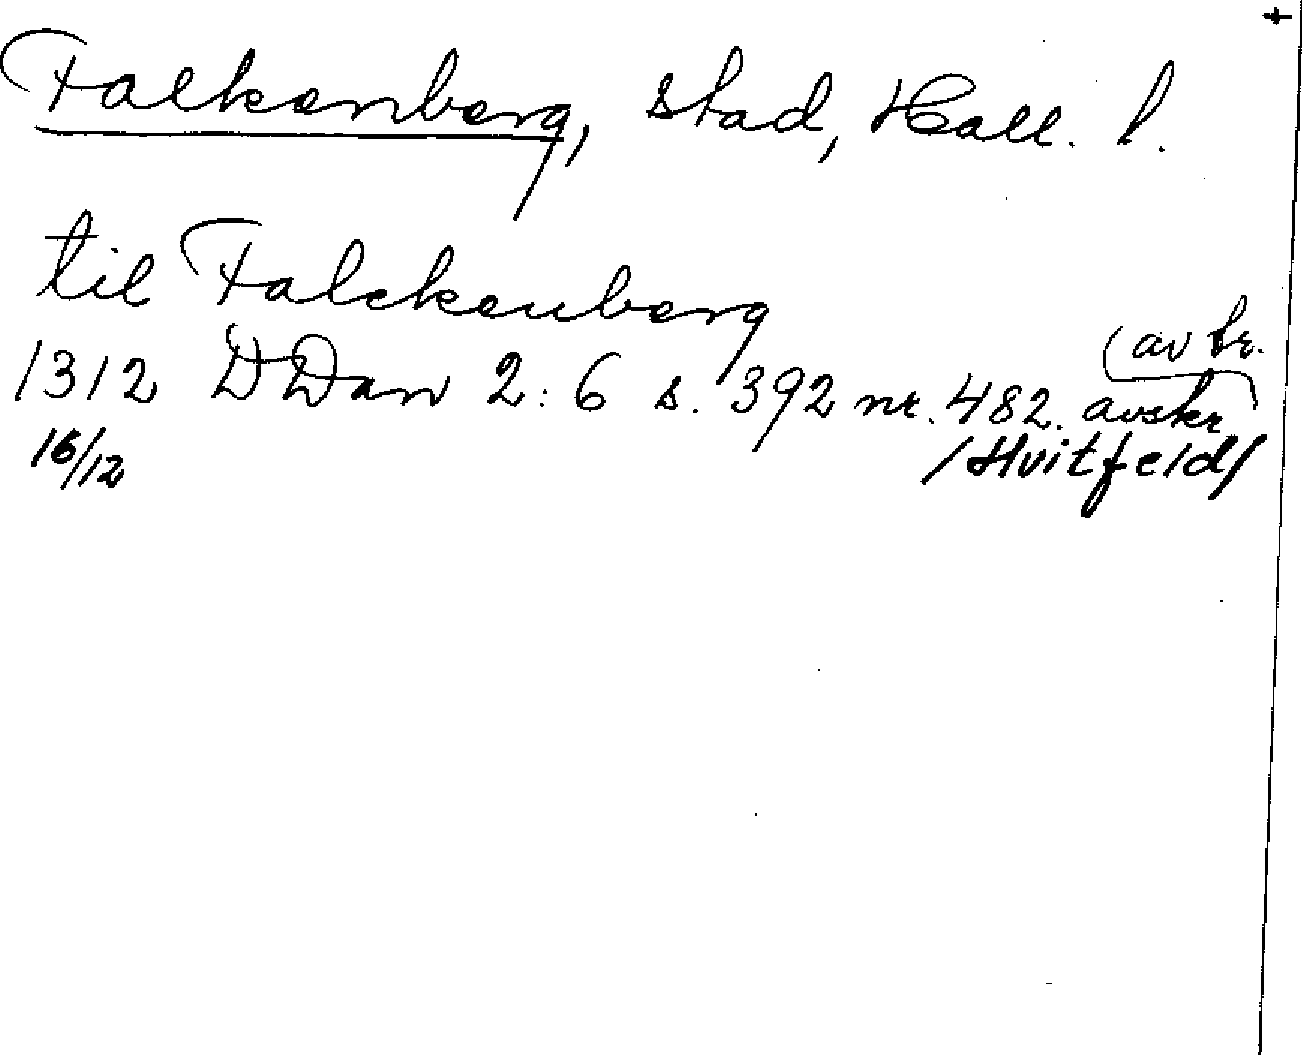 Falkenberg, stad, Hall. l.
til Falckenberg
1312 DDan 2:6 s. 392 nr. 482. avskr (av br.
16/12 /Hvitfeld/